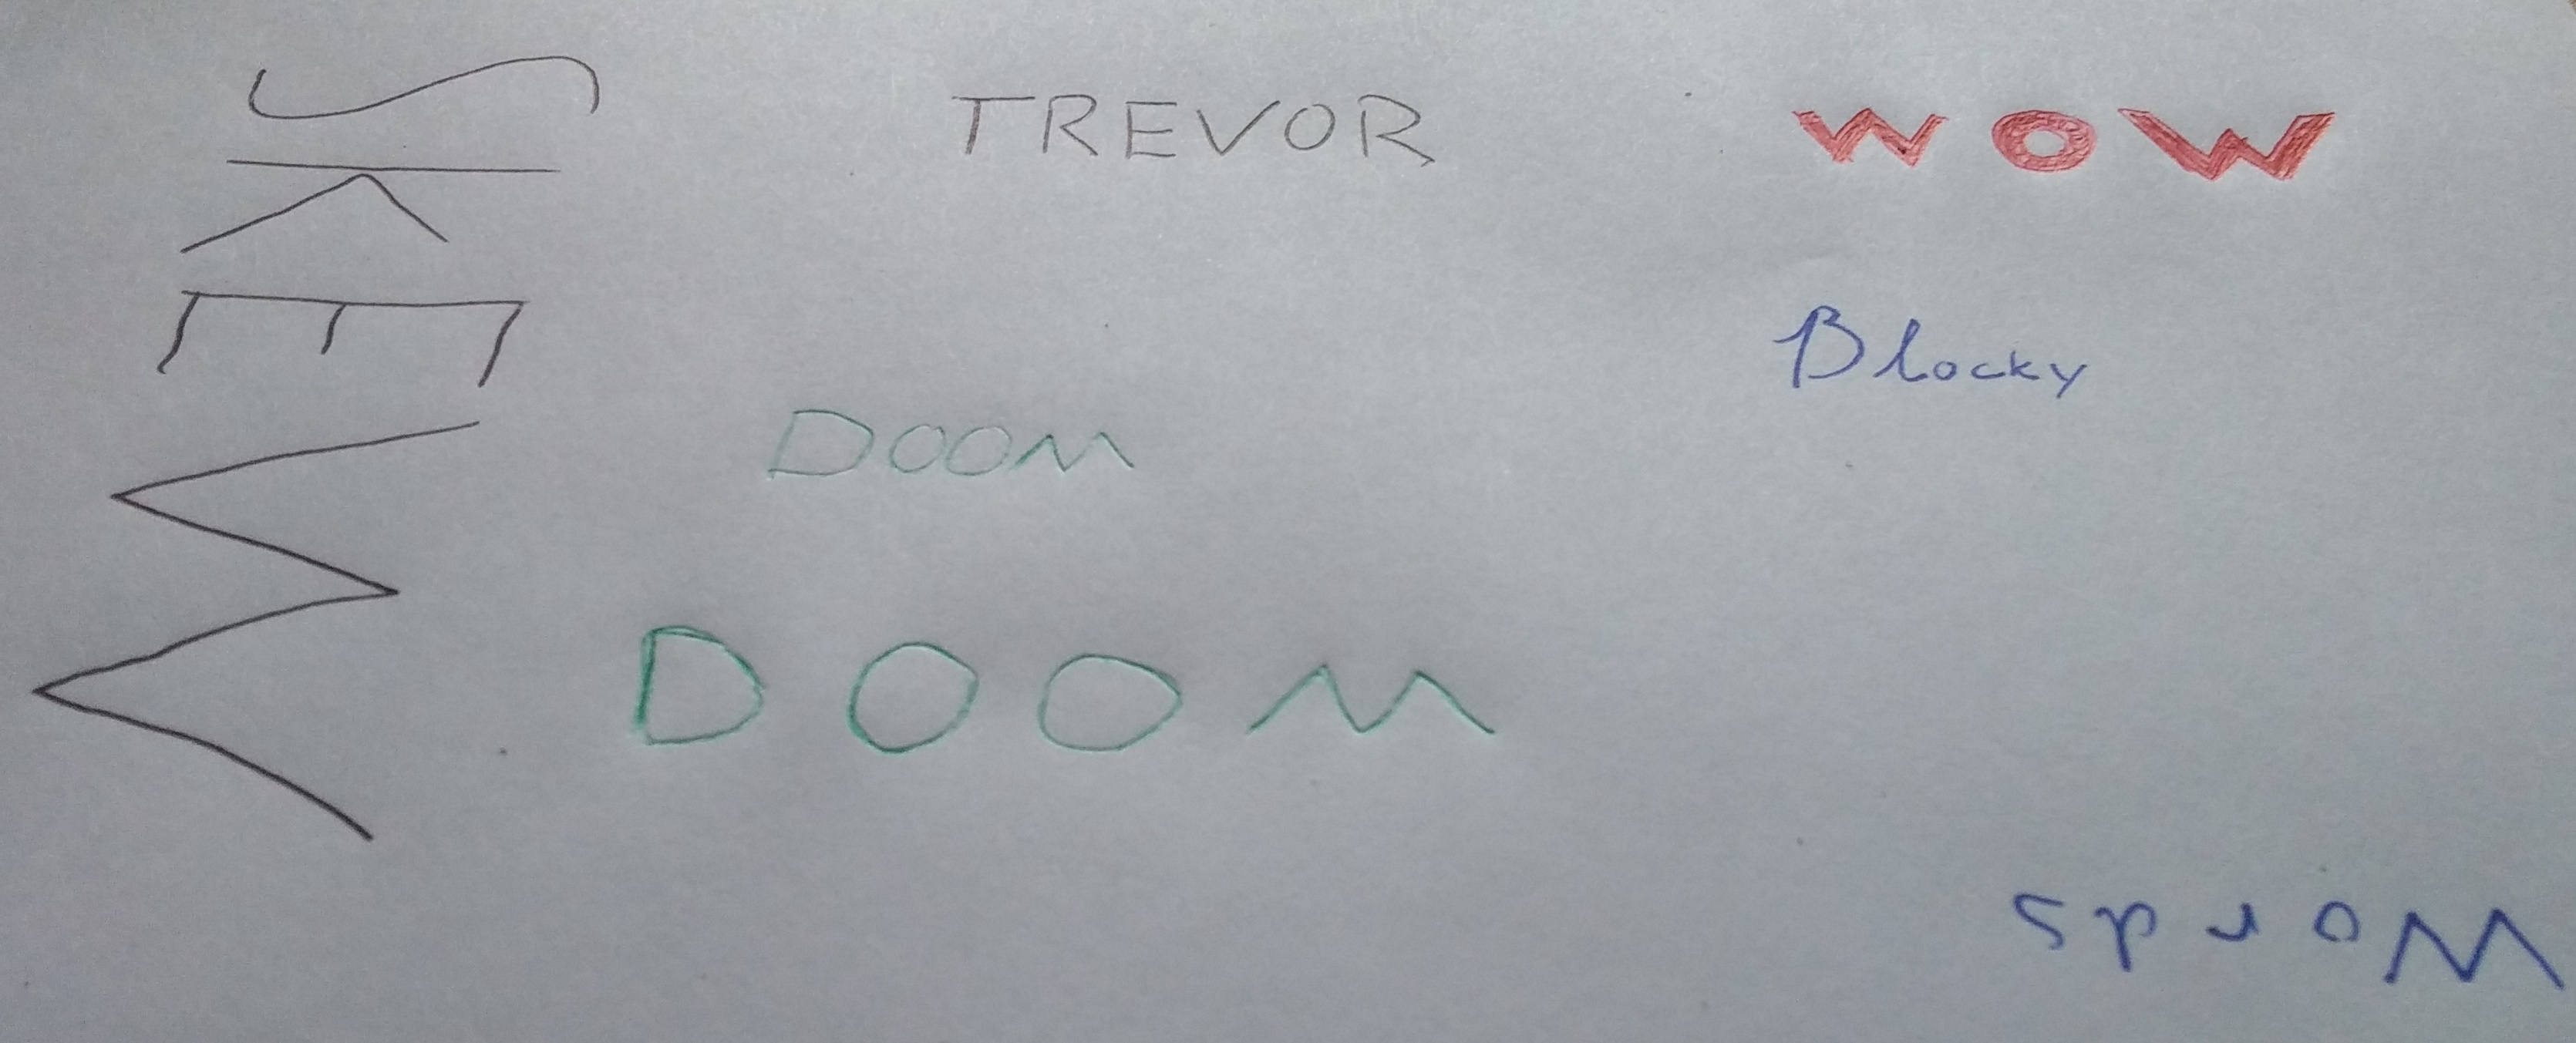 SKEW
TREVOR
WOW
Blocky
DOOM
DOOM
Words